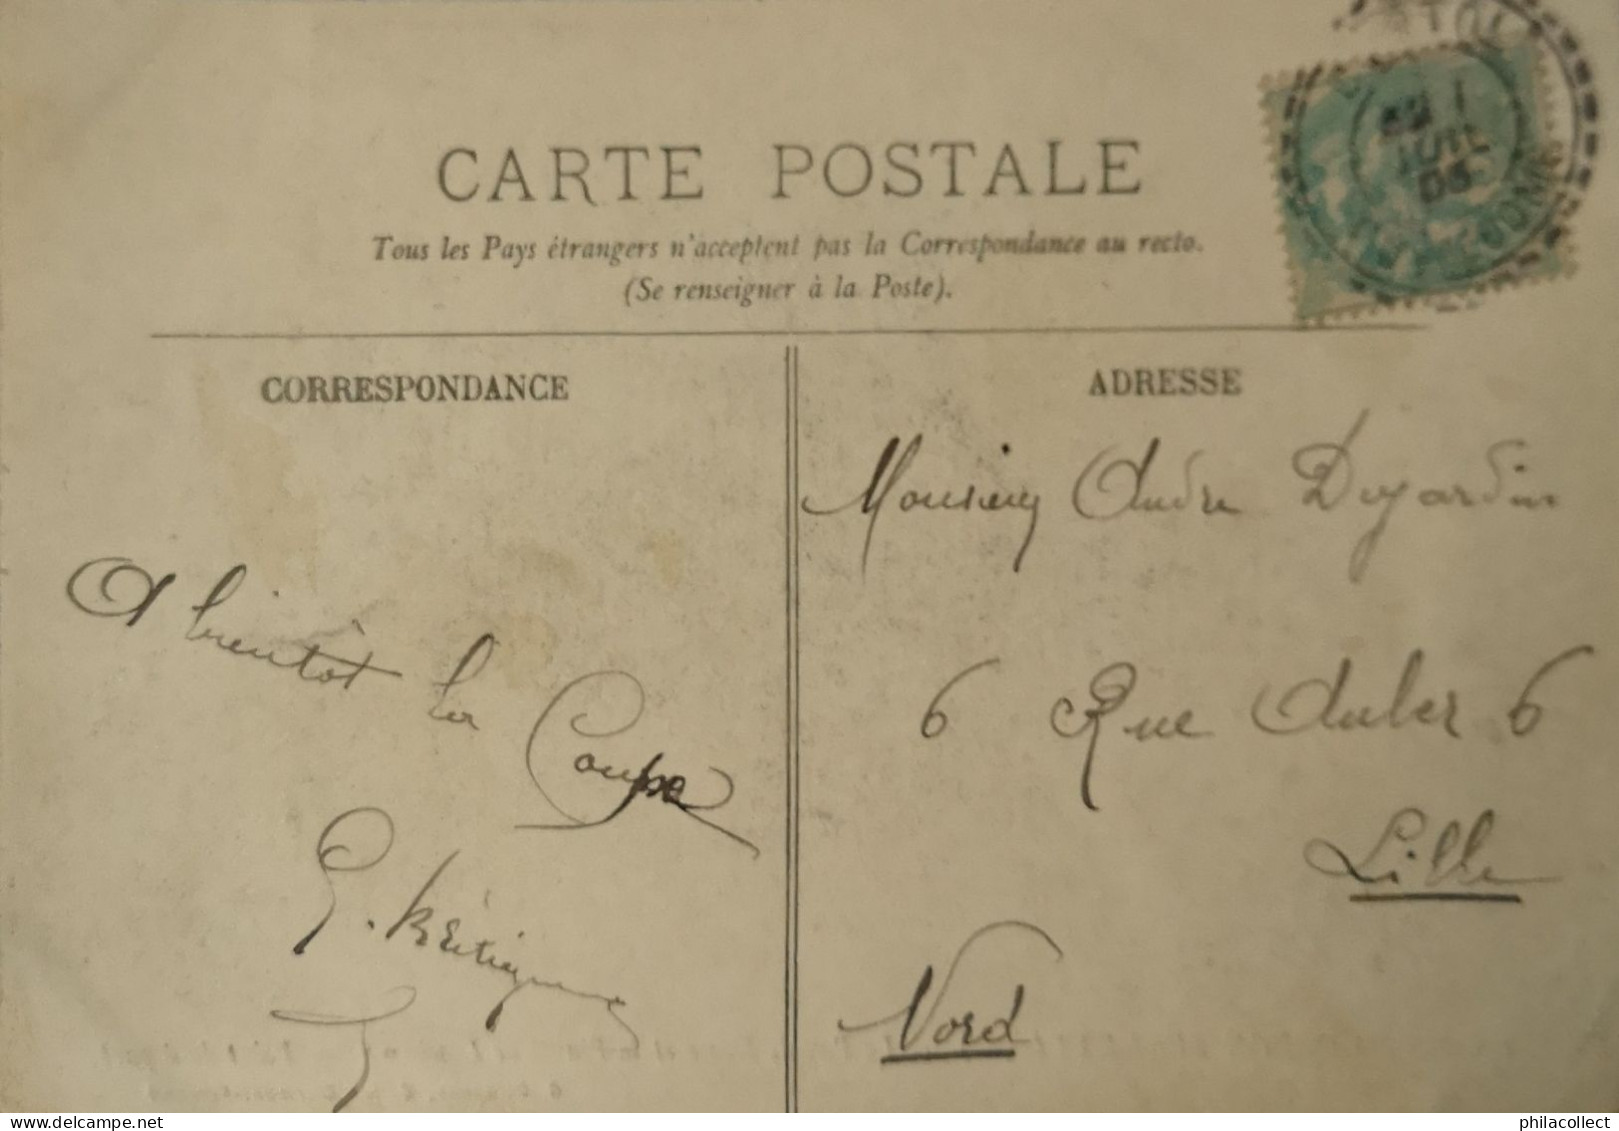 CARTE POSTALE
Tous les Pays étrangers n'acceptent pas la Correspondance au recto.
(Se renseigner à la Poste).
CORRESPONDANCE
A bientôt la
Coupe
ADRESSE
Monsieur André Dujardin
6 Rue Auber 6
Lille
Nord
1
JUIL
05
DOME
philacollect